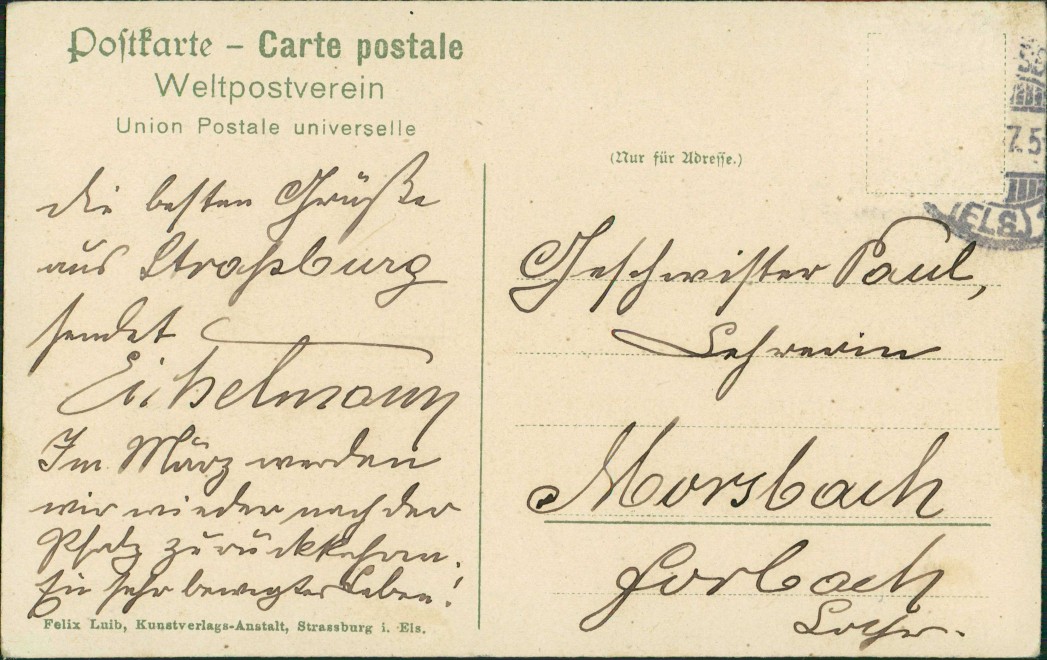 Postkarte – Carte postale
Weltpostverein
Union Postale universelle
(Nur für Adresse.)
7.5
(ELS.)
die besten Grüße
aus Straßburg
sendet
Eichelmann
Im März werden
wir wieder nach der
Pfalz zurückkehren.
Ein sehr bewegtes Leben!
Felix Luib, Kunstverlags-Anstalt, Strassburg i. Els.
Geschwister Paul,
Lehrerin
Morsbach
Forbach
Lothr.